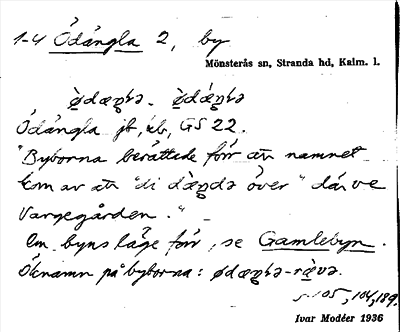 1-4 Ödängla 2, by
Mönsterås sn, Stranda hd, Kalm. l.
Ödängla jb, kb, GS 22.
"Byborna berättade förr att namnet
kom av att "di över" där ve
Vargegården."
Om byns läge förr, se Gamlebyn.
Öknamn på byborna:
s. 105, 104, 189.
Ivar Modéer 1936